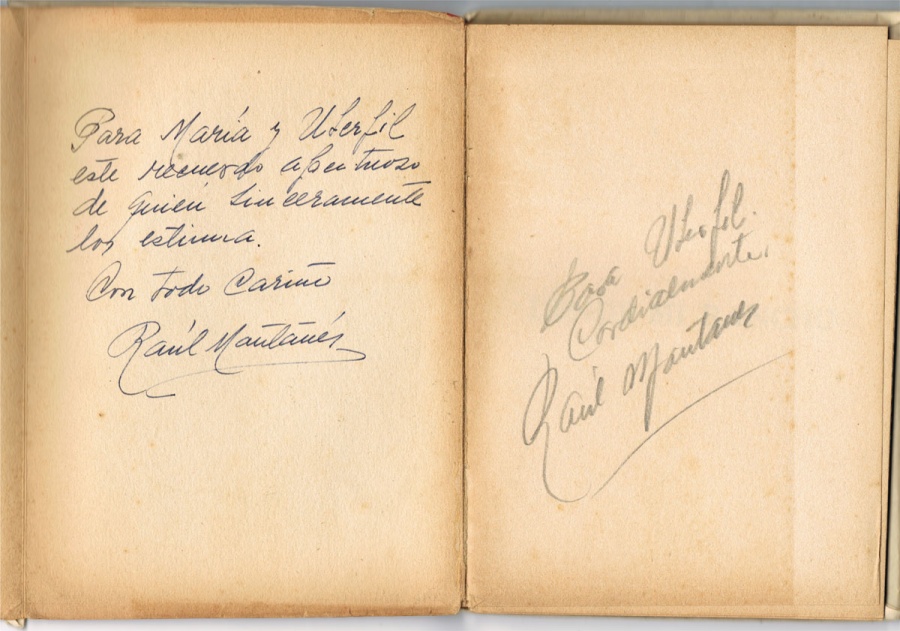 Para María y Uterfil
este recuerdo afectuoso
de quién sinceramente
los estima.
Con todo Cariño
Raúl Montanés
Para Uterfil.
Cordialmente,
Raúl Montanés